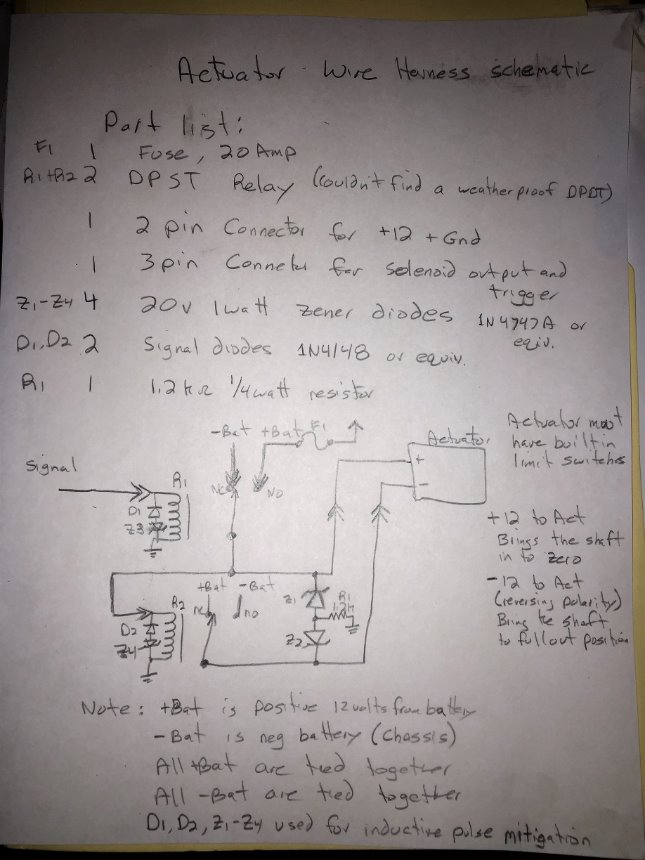 Actuator Wire Harness schematic
Part list:
F1 1 Fuse, 20 Amp
R1+R2 2 DPST Relay (couldn't find a weatherproof DPDT)
1 2 pin Connector for +12 + Gnd
1 3 pin Connector for Solenoid output and
trigger
Z1-Z4 4 20v 1watt zener diodes 1N4747A or
equiv.
D1, D2 2 Signal diodes 1N4148 or equiv.
R1 1 1.2kΩ 1/4watt resistor
-Bat +Bat F1
Actuator
Actuator must
have built in
limit switches
Signal
R1
NC
NO
+
-
D1
Z3
+12 to Act
Brings the shaft
in to zero
-12 to Act
(reversing polarity)
Bring the shaft
to full out position
+Bat -Bat
R2
NC
NO
Z1
R1
1.2K
D2
Z4
Z2
Note: +Bat is positive 12 volts from battery
-Bat is neg battery (chassis)
All +Bat are tied together
All -Bat are tied together
D1, D2, Z1-Z4 used for inductive pulse mitigation